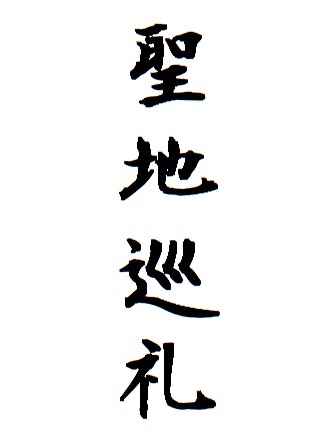 聖地巡礼